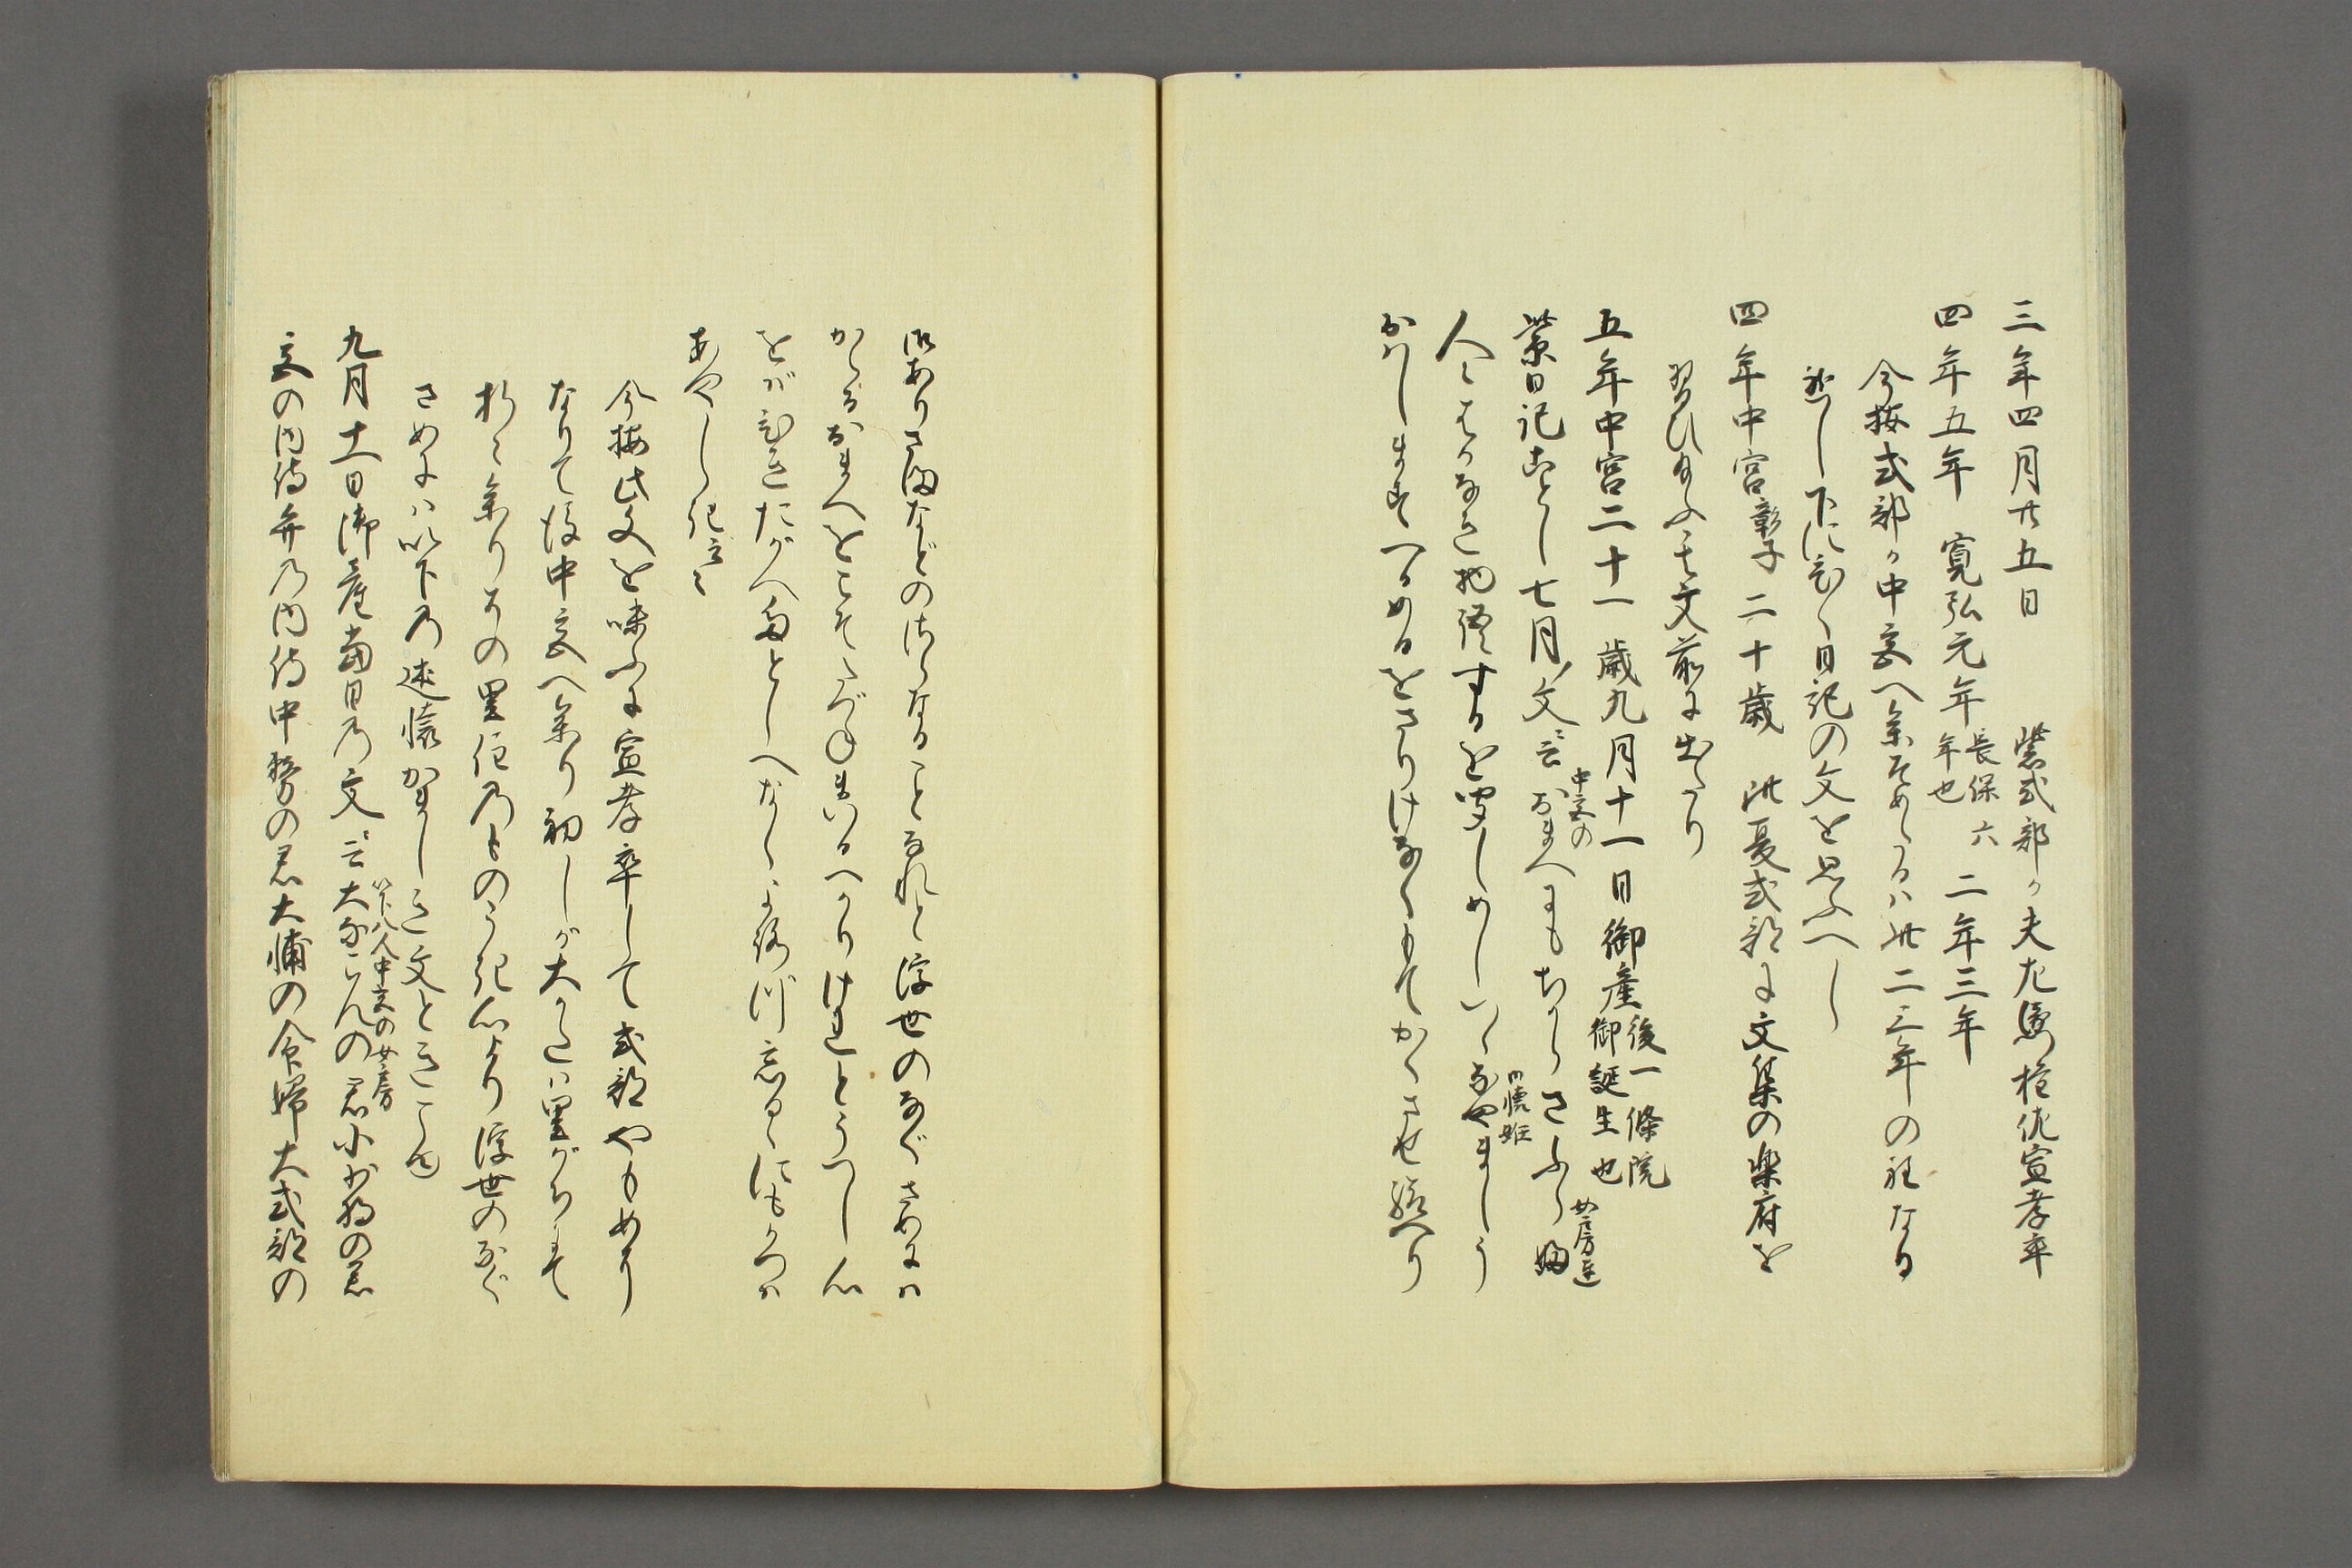 三年四月廿五日　紫式部か夫左衛門権佐宣孝卒
四年五年　寛弘元年長保六年也　二年三年
今按式部か中宮へ参そめたるハ此二三年の程なる
へし下にひく日記の文を思ふへし
四年中宮彰子二十歳　此夏式部に文集の楽府を
習ひ給ふ其文前に出たり
五年中宮二十一歳九月十一日御産後一條院御誕生也
紫日記ことし七月ノ文ニ云中宮のおまへにもちかうさふらふ女房達
人々はかなき物語するを聞しめしつゝ御懐姙なやましう
おはしますへかめるをさりけなくもてかくさせ給へり
御ありさまなどのさらなることなれと浮世のなぐさめにハ
かゝるおまへをこそたづねまいるへかりけれとうつし心
をばひきたがへたとしへなくよろづ忘るゝにもかつハ
あやしく記云々
今按此文を味ふに宣孝卒して式部やもめに
なりて後中宮へ参り初しが大かたハ里がちにて
折々参りその里住のものうき心より浮世のなぐ
さめにハ以下の述懐かましき文ときこゆ
九月十一日御産当日の文ニ云大なごんの君小少将の君以下八人中宮の女房
宮の内侍弁の内侍中務の君大輔の命婦大式部の